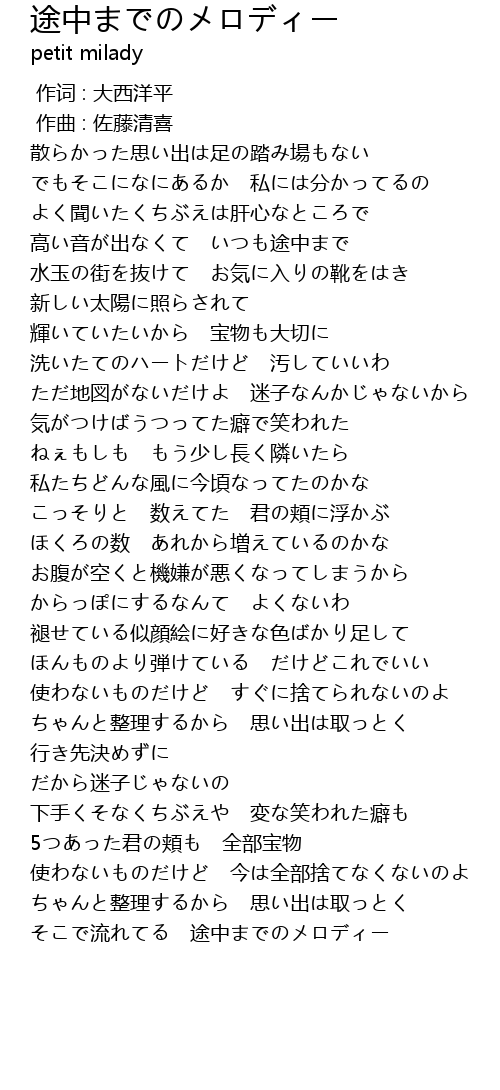 途中までのメロディー
petit milady
作词 : 大西洋平
作曲 : 佐藤清喜
散らかった思い出は足の踏み場もない
でもそこになにあるか　私には分かってるの
よく聞いたくちぶえは肝心なところで
高い音が出なくて　いつも途中まで
水玉の街を抜けて　お気に入りの靴をはき
新しい太陽に照らされて
輝いていたいから　宝物も大切に
洗いたてのハートだけど　汚していいわ
ただ地図がないだけよ　迷子なんかじゃないから
気がつけばうつってた癖で笑われた
ねぇもしも　もう少し長く隣いたら
私たちどんな風に今頃なってたのかな
こっそりと　数えてた　君の頬に浮かぶ
ほくろの数　あれから増えているのかな
お腹が空くと機嫌が悪くなってしまうから
からっぽにするなんて　よくないわ
褪せている似顔絵に好きな色ばかり足して
ほんものより弾けている　だけどこれでいい
使わないものだけど　すぐに捨てられないのよ
ちゃんと整理するから　思い出は取っとく
行き先決めずに
だから迷子じゃないの
下手くそなくちぶえや　変な笑われた癖も
5つあった君の頬も　全部宝物
使わないものだけど　今は全部捨てなくないのよ
ちゃんと整理するから　思い出は取っとく
そこで流れてる　途中までのメロディー